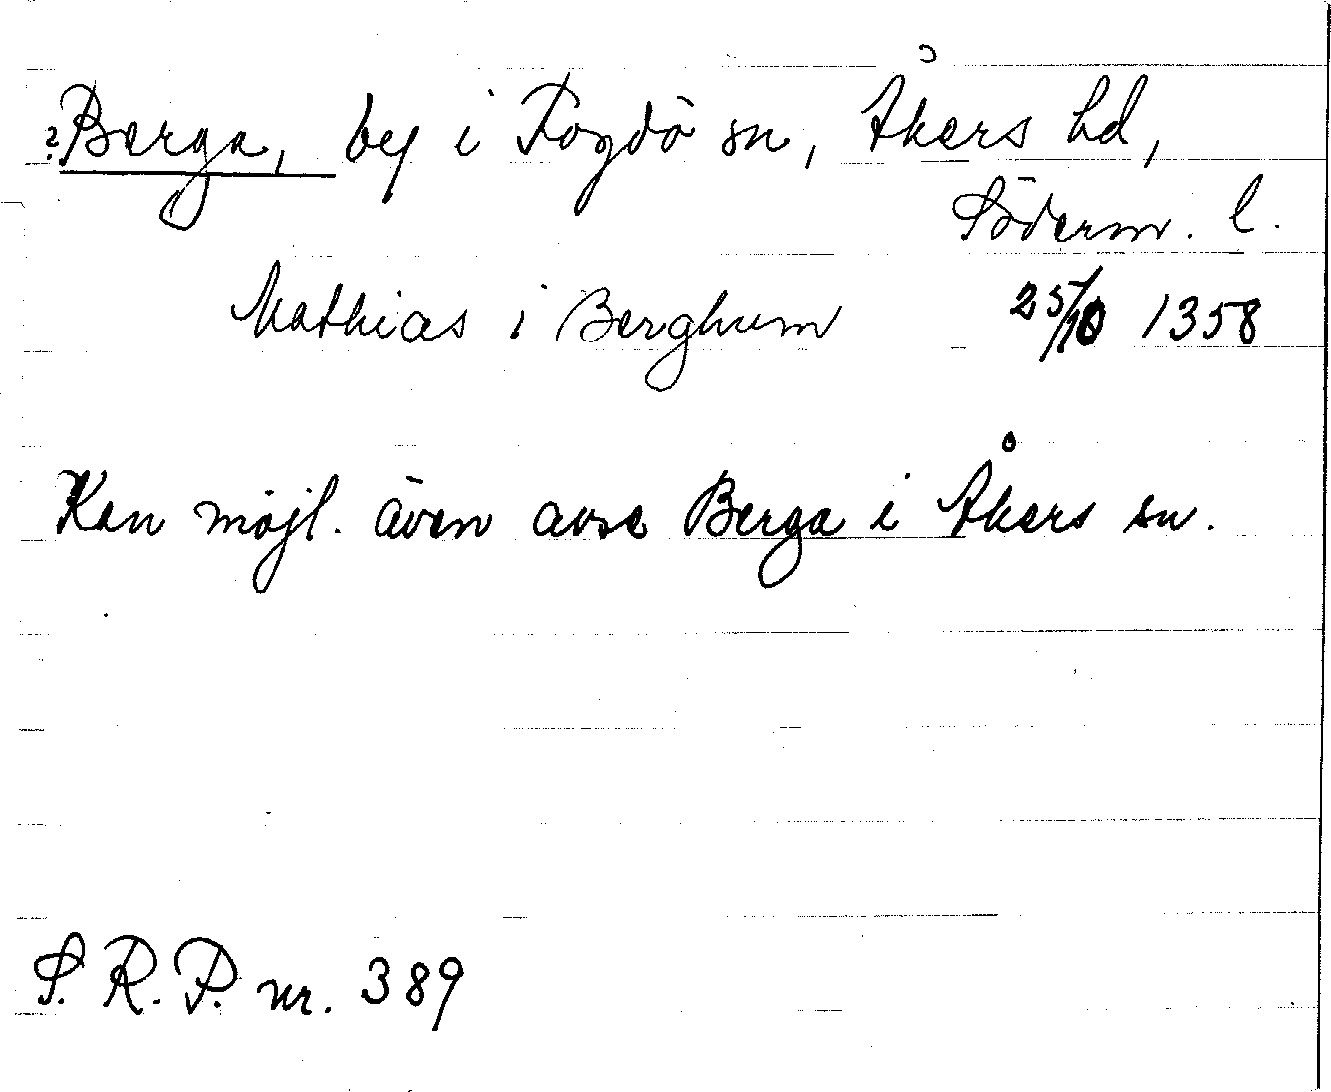 ?Berga, by i Fogdö sn, Åkers hd,
Söderm. l.
Mathias i Berghum 25/10 1358
Kan möjl. även avse Berga i Åkers sn.
S. R. P. nr. 389